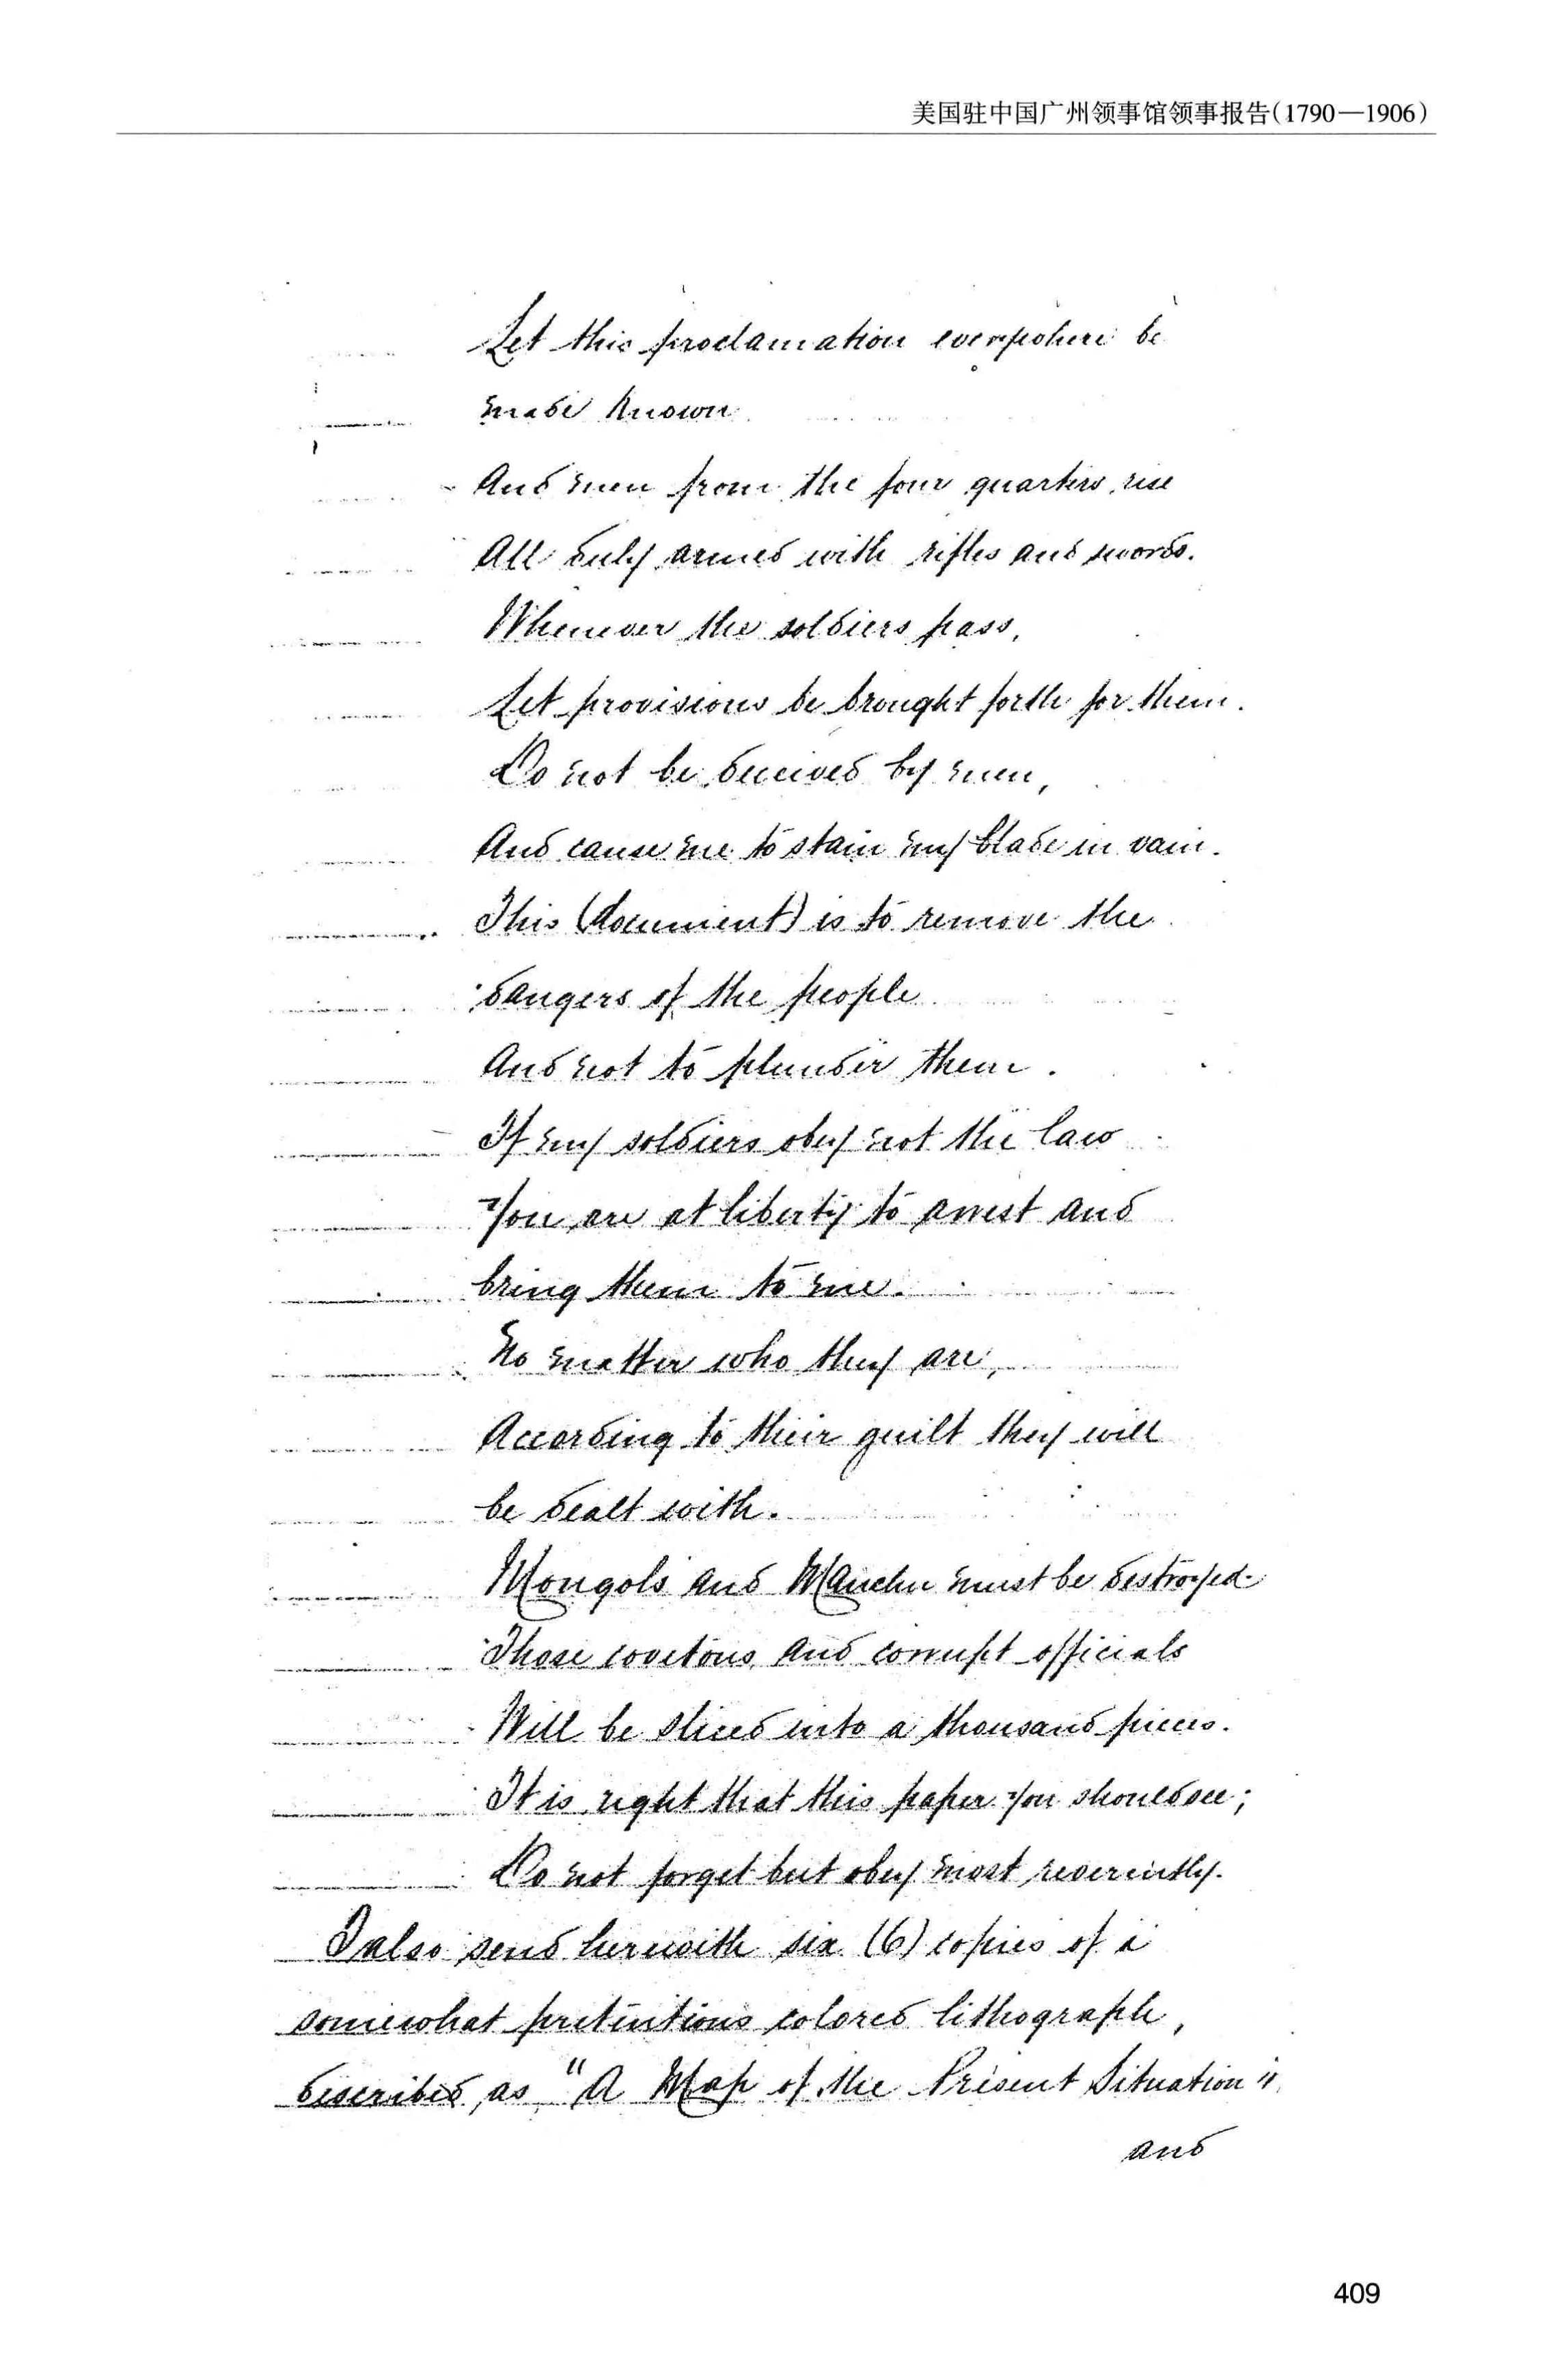 美国驻中国广州领事馆领事报告(1790—1906)
Let this proclamation everywhere be
made known
And men from the four quarters rise
All duly armed with rifles and swords.
Whenever the soldiers pass,
Let provisions be brought forth for them.
Do not be deceived by men,
And cause me to stain my blade in vain.
This (document) is to remove the
dangers of the people
And not to plunder them.
If my soldiers obey not the law
You are at liberty to arrest and
bring them to me.
No matter who they are,
According to their guilt they will
be dealt with.
Mongols and Manchu must be destroyed.
Those covetous and corrupt officials
Will be sliced into a thousand pieces.
It is right that this paper you should see;
Do not forget but obey most reverently.
I also send herewith six (6) copies of a
somewhat pretentious colored lithograph,
described as "A Map of the Present Situation"
and
409